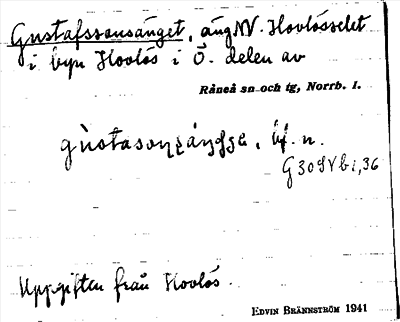 Gustafssonsänget, äng NV. Hovlösselet
i byn Hovlös i Ö. delen av
Råneå sn och tg, Norrb. l.
bf. n.
G 30 S V b 1,36
Uppgiften från Hovlös.
EDVIN BRÄNNSTRÖM 1941